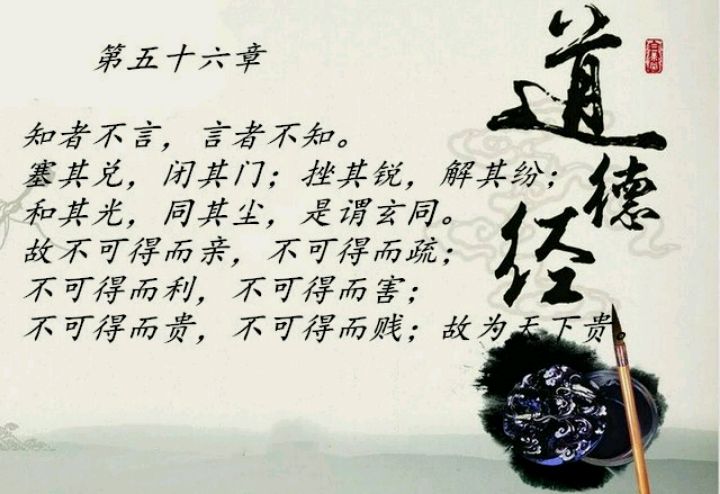 第五十六章
知者不言，言者不知。
塞其兑，闭其门；挫其锐，解其纷；
和其光，同其尘，是谓玄同。
故不可得而亲，不可得而疏；
不可得而利，不可得而害；
不可得而贵，不可得而贱；故为天下贵。
道德经